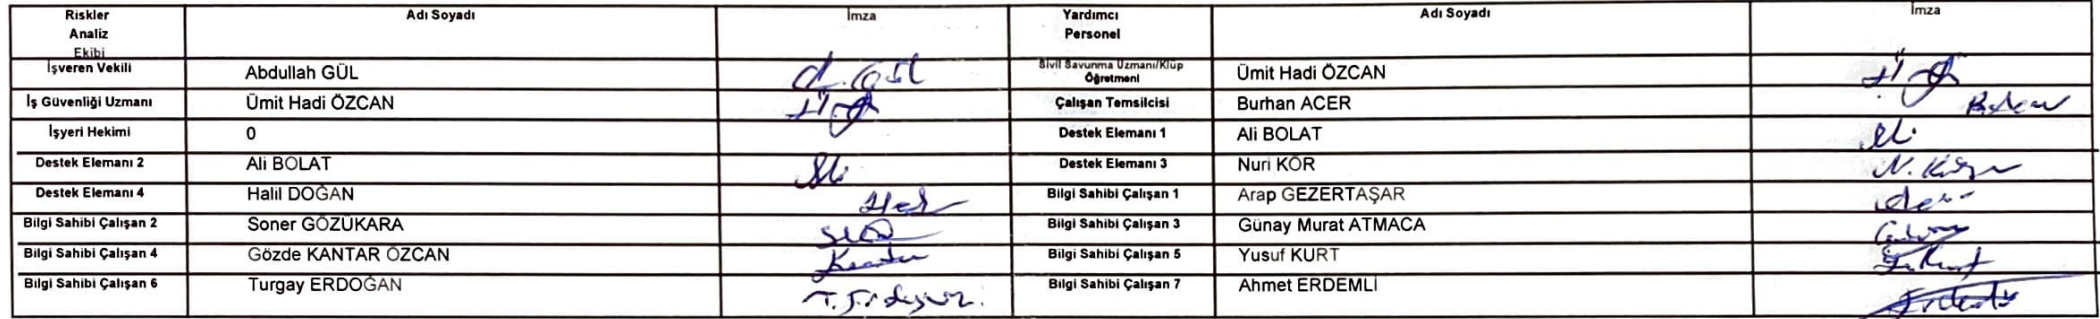 Riskler Analiz Ekibi Adı Soyadı İmza Yardımcı Personel Adı Soyadı İmza
İşveren Vekili Abdullah GÜL Sivil Savunma Uzmanı/Klüp Öğretmeni Ümit Hadi ÖZCAN
İş Güvenliği Uzmanı Ümit Hadi ÖZCAN Çalışan Temsilcisi Burhan ACER
İşyeri Hekimi 0 Destek Elemanı 1 Ali BOLAT
Destek Elemanı 2 Ali BOLAT Destek Elemanı 3 Nuri KÖR
Destek Elemanı 4 Halil DOĞAN Bilgi Sahibi Çalışan 1 Arap GEZERTAŞAR
Bilgi Sahibi Çalışan 2 Soner GÖZÜKARA Bilgi Sahibi Çalışan 3 Günay Murat ATMACA
Bilgi Sahibi Çalışan 4 Gözde KANTAR ÖZCAN Bilgi Sahibi Çalışan 5 Yusuf KURT
Bilgi Sahibi Çalışan 6 Turgay ERDOĞAN Bilgi Sahibi Çalışan 7 Ahmet ERDEMLİ